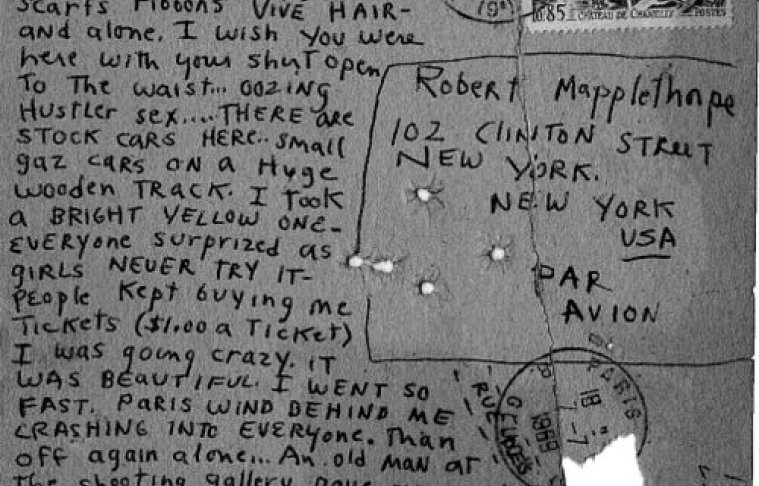 scarfs ribbons VIVE HAIR-
and alone. I wish you were
here with your shirt open
To The waist... oozing
Hustler sex.... THERE are
STOCK CARS HERE.. small
gaz cars on a Huge
wooden TRACK. I Took
a BRIGHT YELLOW ONE-
EVERYone surprized as
gIRLS NEVER TRY IT-
PEOPLE Kept buying me
Tickets ($1.00 a Ticket)
I was going crazy. IT
WAS BEAUTIFUL. I WENT SO
FAST. PARIS WIND BEHIND ME
CRASHING INTO EVERYONE. Than
off again alone... An old man at
The shooting gallery gave
0.85 CHATEAU DE CHANTILLY POSTES
Robert Mapplethorpe
102 CLINTON STREET
NEW YORK.
NEW YORK
USA
PAR
AVION
PARIS
18
7-7
1969
RUE